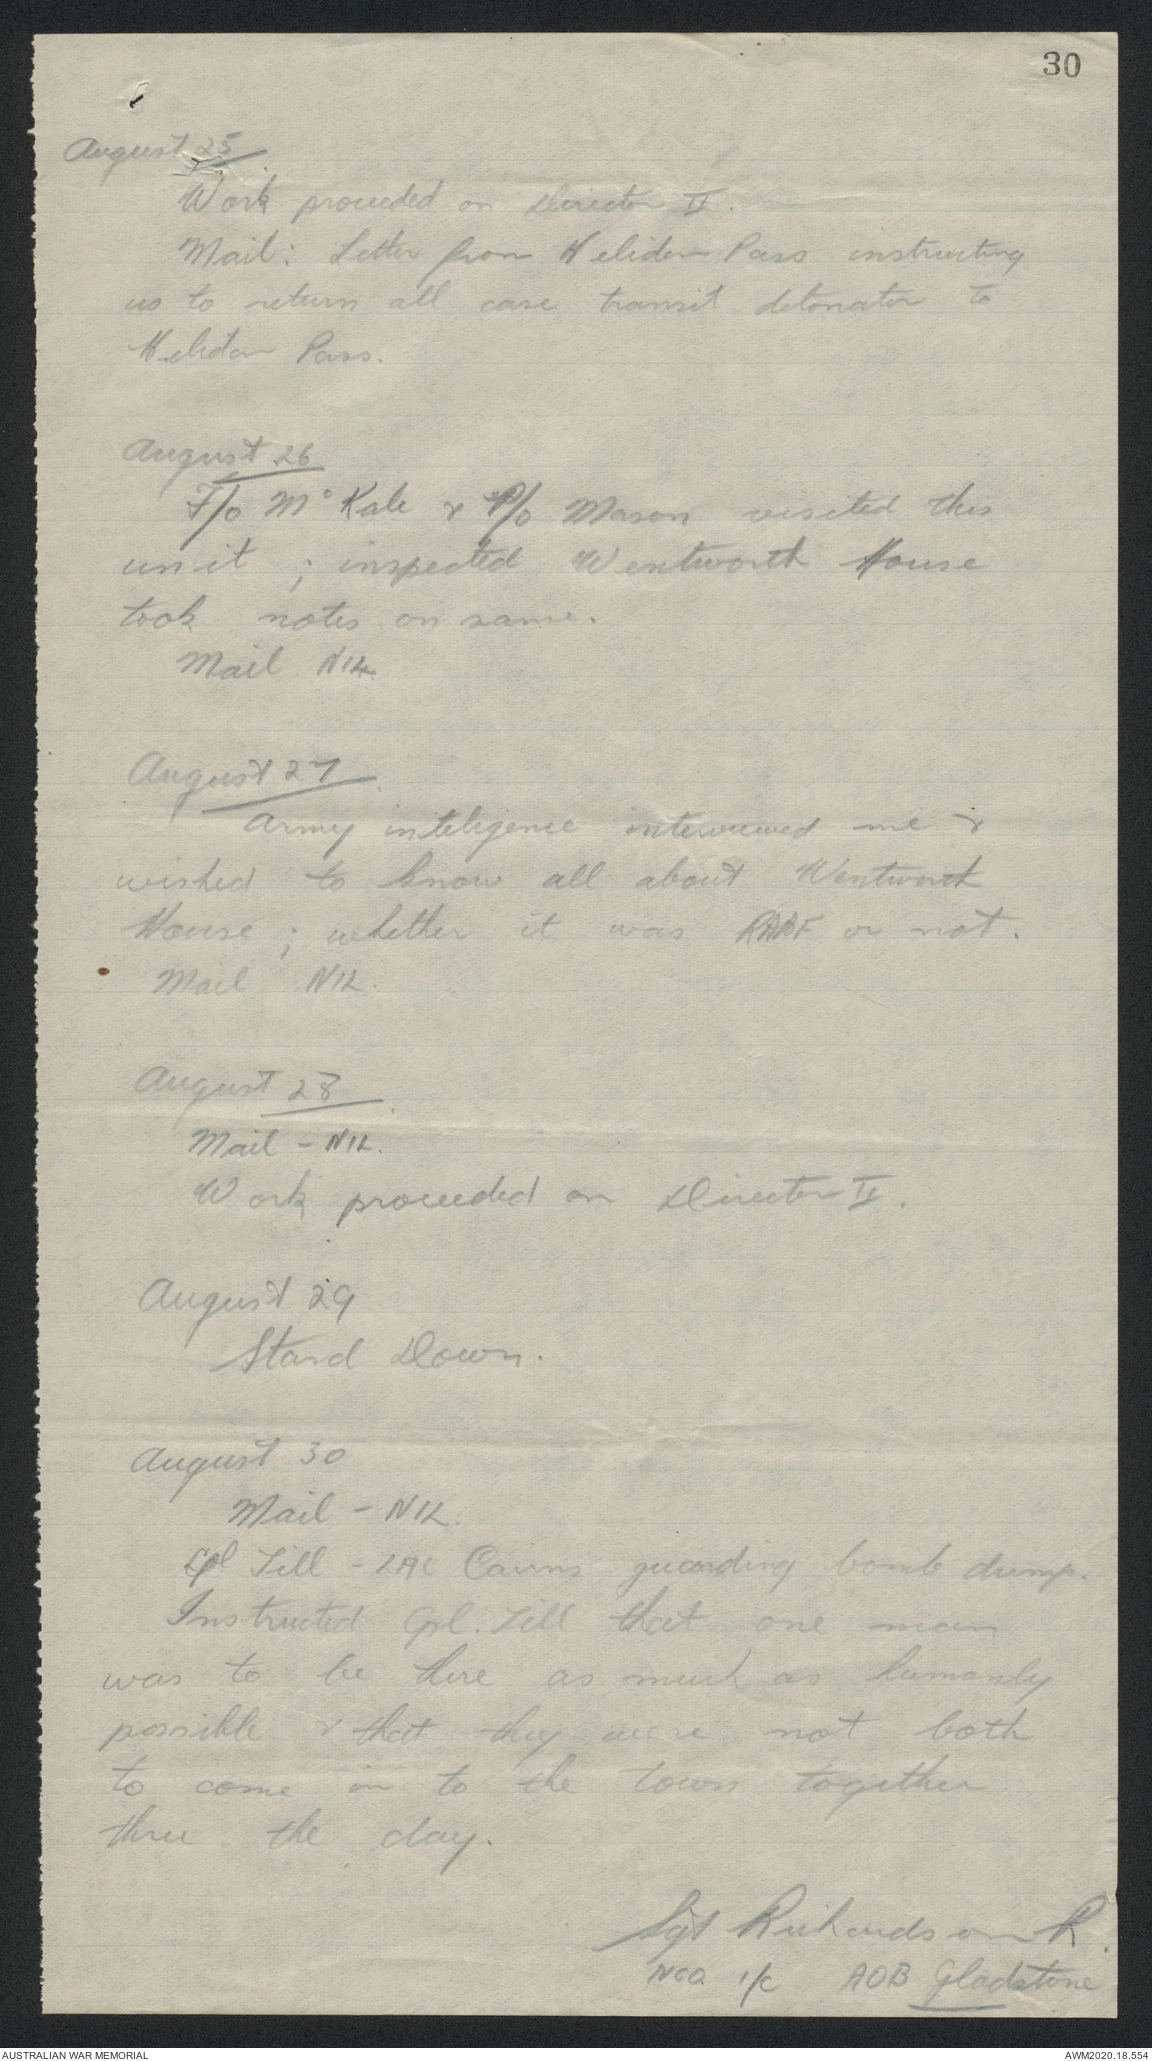 30
August 25
Work proceeded on Director II.
Mail: Letter from Helidon Pass instructing
us to return all case transit detonator to
Helidon Pass.
August 26
F/o McKale & P/o Mason visited this
unit ; inspected Wentworth House
took notes on same.
Mail NIL
August 27
Army inteligence interviewed me &
wished to know all about Wentworth
House ; whether it was RAAF or not.
Mail NIL.
August 28
Mail - NIL.
Work proceeded on Director II.
August 29
Stand Down.
August 30
Mail - NIL.
Cpl Till - LAC Cairns guarding bomb dump.
Instructed Cpl. Till that one man
was to be there as much as humanly
possible & that they were not both
to come in to the town together
thru the day.
Sgt Richardson R.
NCO i/c AOB Gladstone
AUSTRALIAN WAR MEMORIAL
AWM2020.18.554